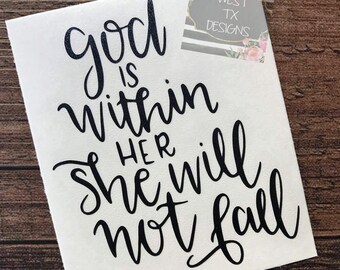 god
is
within
HER
she will
not fall
WEST
TX
DESIGNS